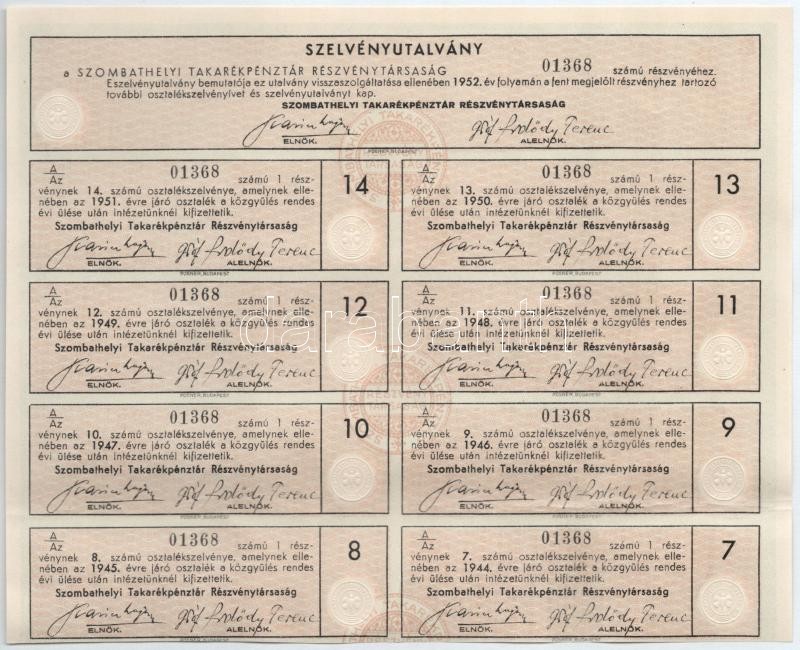 SZELVÉNYUTALVÁNY
a SZOMBATHELYI TAKARÉKPÉNZTÁR RÉSZVÉNYTÁRSASÁG 01368 számú részvényéhez.
E szelvényutalvány bemutatója ez utalvány visszaszolgáltatása ellenében 1952. év folyamán a fent megjelölt részvényhez tartozó
további osztalékszelvényívet és szelvényutalványt kap.
SZOMBATHELYI TAKARÉKPÉNZTÁR RÉSZVÉNYTÁRSASÁG
gróf Erdődy Ferenc
ELNÖK. ALELNÖK.
POSNER, BUDAPEST
A/Az 01368 számú 1 rész-
vénynek 14. számú osztalékszelvénye, amelynek elle-
nében az 1951. évre járó osztalék a közgyűlés rendes
évi ülése után intézetünknél kifizettetik.
Szombathelyi Takarékpénztár Részvénytársaság
gróf Erdődy Ferenc
ELNÖK. ALELNÖK.
14
POSNER, BUDAPEST
A/Az 01368 számú 1 rész-
vénynek 13. számú osztalékszelvénye, amelynek elle-
nében az 1950. évre járó osztalék a közgyűlés rendes
évi ülése után intézetünknél kifizettetik.
Szombathelyi Takarékpénztár Részvénytársaság
gróf Erdődy Ferenc
ELNÖK. ALELNÖK.
13
POSNER, BUDAPEST
A/Az 01368 számú 1 rész-
vénynek 12. számú osztalékszelvénye, amelynek elle-
nében az 1949. évre járó osztalék a közgyűlés rendes
évi ülése után intézetünknél kifizettetik.
Szombathelyi Takarékpénztár Részvénytársaság
gróf Erdődy Ferenc
ELNÖK. ALELNÖK.
12
POSNER, BUDAPEST
A/Az 01368 számú 1 rész-
vénynek 11. számú osztalékszelvénye, amelynek elle-
nében az 1948. évre járó osztalék a közgyűlés rendes
évi ülése után intézetünknél kifizettetik.
Szombathelyi Takarékpénztár Részvénytársaság
gróf Erdődy Ferenc
ELNÖK. ALELNÖK.
11
POSNER, BUDAPEST
darabanth
A/Az 01368 számú 1 rész-
vénynek 10. számú osztalékszelvénye, amelynek elle-
nében az 1947. évre járó osztalék a közgyűlés rendes
évi ülése után intézetünknél kifizettetik.
Szombathelyi Takarékpénztár Részvénytársaság
gróf Erdődy Ferenc
ELNÖK. ALELNÖK.
10
POSNER, BUDAPEST
A/Az 01368 számú 1 rész-
vénynek 9. számú osztalékszelvénye, amelynek elle-
nében az 1946. évre járó osztalék a közgyűlés rendes
évi ülése után intézetünknél kifizettetik.
Szombathelyi Takarékpénztár Részvénytársaság
gróf Erdődy Ferenc
ELNÖK. ALELNÖK.
9
POSNER, BUDAPEST
A/Az 01368 számú 1 rész-
vénynek 8. számú osztalékszelvénye, amelynek elle-
nében az 1945. évre járó osztalék a közgyűlés rendes
évi ülése után intézetünknél kifizettetik.
Szombathelyi Takarékpénztár Részvénytársaság
gróf Erdődy Ferenc
ELNÖK. ALELNÖK.
8
A/Az 01368 számú 1 rész-
vénynek 7. számú osztalékszelvénye, amelynek elle-
nében az 1944. évre járó osztalék a közgyűlés rendes
évi ülése után intézetünknél kifizettetik.
Szombathelyi Takarékpénztár Részvénytársaság
gróf Erdődy Ferenc
ELNÖK. ALELNÖK.
7